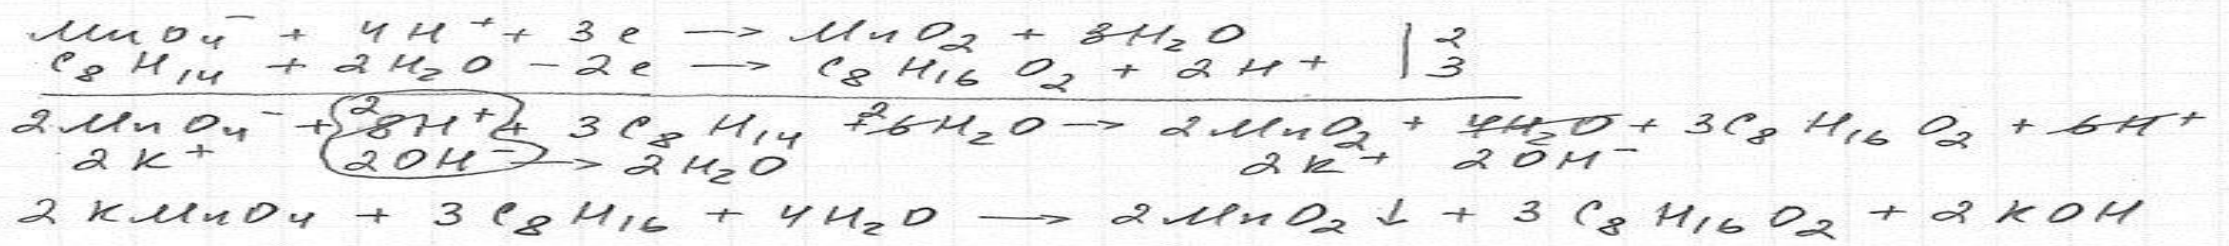 MnO₄⁻ + 4H⁺ + 3e → MnO₂ + 8H₂O | 2
C₈H₁₄ + 2H₂O - 2e → C₈H₁₆O₂ + 2H⁺ | 3
2MnO₄⁻ + 28H⁺ + 3C₈H₁₄ + 26H₂O → 2MnO₂ + 4H₂O + 3C₈H₁₆O₂ + 6H⁺
2K⁺ 2OH⁻ → 2H₂O 2K⁺ 2OH⁻
2KMnO₄ + 3C₈H₁₆ + 4H₂O → 2MnO₂↓ + 3C₈H₁₆O₂ + 2KOH